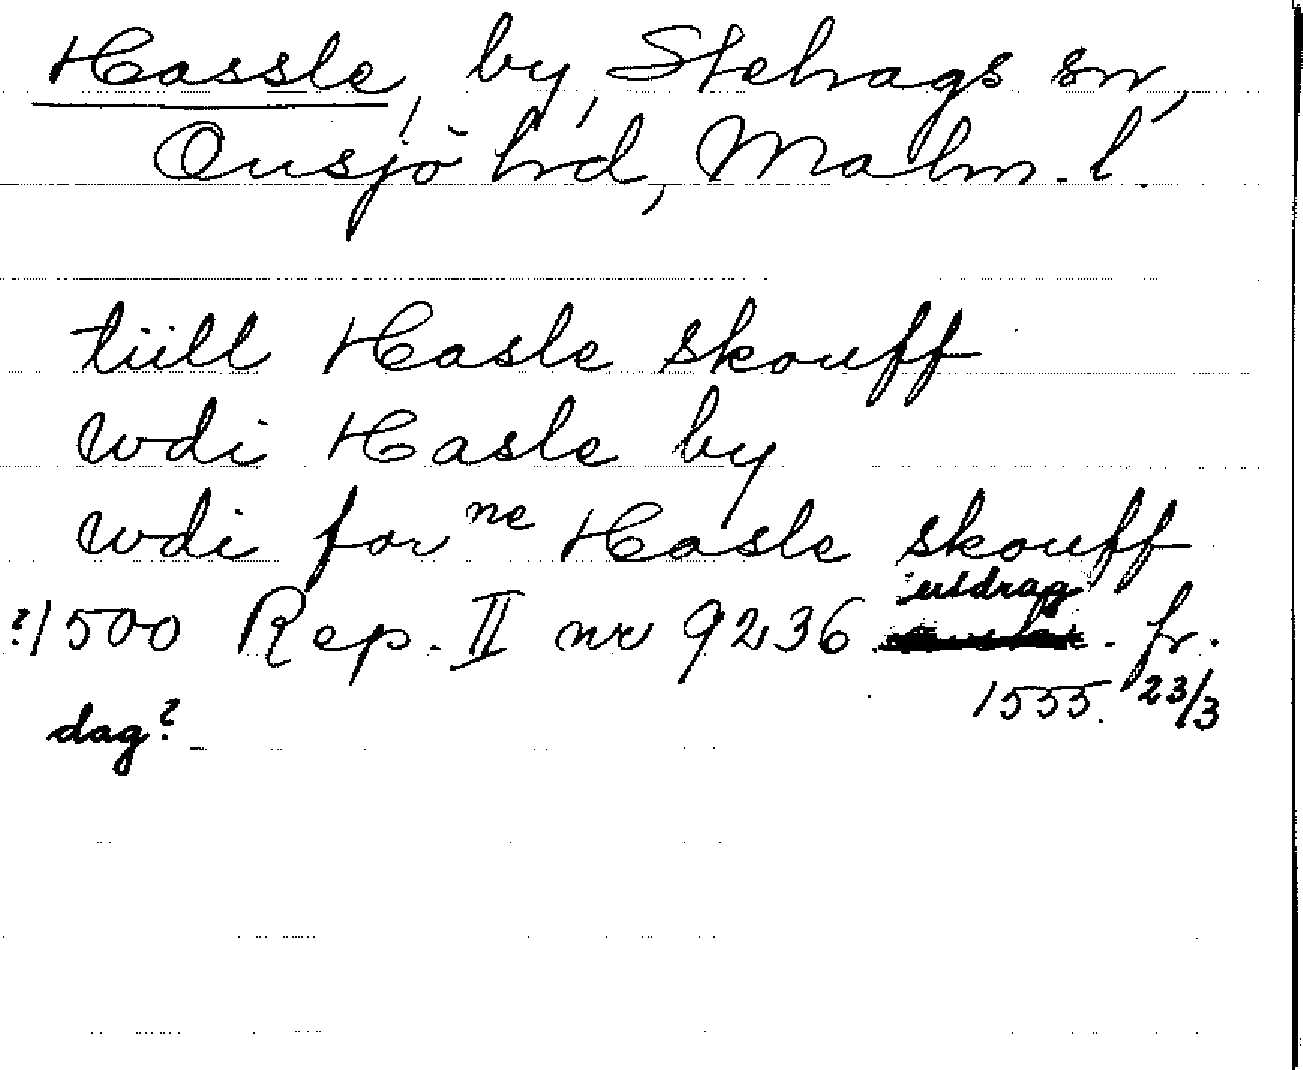 Hassle, by, Stehags sn,
Onsjö hd, Malm. l.
tiill Hasle skouff
wdi Hasle by
wdi for ne Hasle skouff
utdrag
?1500 Rep. II nr 9236 . fr.
dag? 1555. 23/3